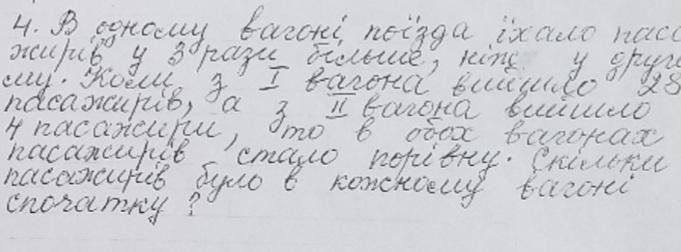 4. В одному вагоні поїзда їхало паса
жирів у 3 рази більше, ніж у друго
му. Коли з I вагона вийшло 28
пасажирів, а з II вагона вийшло
4 пасажири, то в обох вагонах
пасажирів стало порівну. Скільки
пасажирів було в кожному вагоні
спочатку?